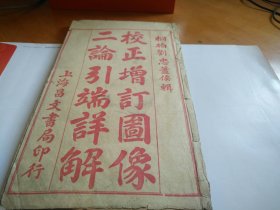 桐城劉忠蓋侯輯
校正增訂圖像
二論引端詳解
上海昌文書局印行